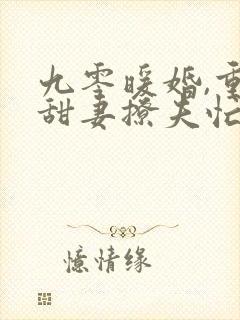 九零暖婚,重
甜妻撩夫忙
憶情缘